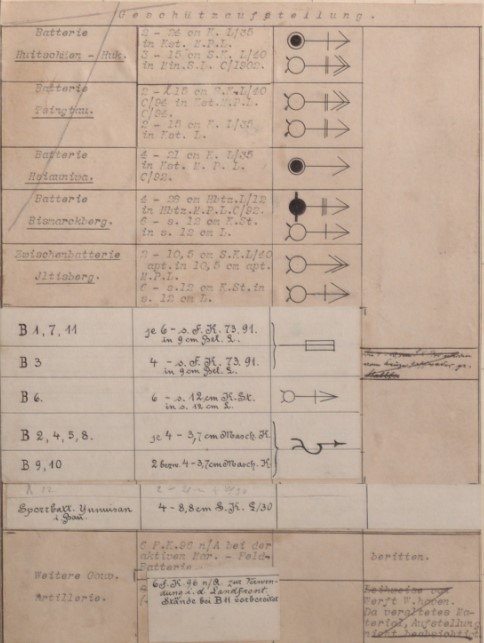 Geschützaufstellung.
Batterie
Huitschien - Huk.
2 - 24 cm K. L/35
in Kst. M.P.L.
3 - 15 cm S.K. L/40
in Min.S.L. C/1902.
Batterie
Tsingtau.
2 - 15 cm S.K.L/40
C/94 in Kst.M.P.L.
C/94.
2 - 15 cm K. L/35
in Kst. L.
Batterie
Hsiauniwa.
4 - 21 cm K. L/35
in Kst. M. P. L.
C/92.
Batterie
Bismarckberg.
4 - 28 cm Hbtz.L/12
in Hbtz.M.P.L.C/92.
6 - s. 12 cm K.St.
in s. 12 cm L.
Zwischenbatterie
Jltisberg.
2 - 10,5 cm S.K.L/40
apt. in 10,5 cm apt.
M.P.L.
6 - s.12 cm K.St.in
s. 12 cm L.
B 1, 7, 11
je 6 - s. F. K. 73. 91.
in 9 cm Bel. L.
B 3
4 - s. F. K. 73. 91.
in 9 cm Bel. L.
B 6.
6 - s. 12 cm K. St.
in s. 12 cm L.
B 2, 4, 5, 8.
je 4 - 3,7 cm Masch. K.
B 9, 10
2 bezw. 4 - 3,7 cm Masch. K
Sperrbatt. Yunuisan
i. Bau.
4 - 8,8 cm S. K. L/30
Weitere Gouv.
Artillerie.
6 F.K.96 n/A bei der
aktiven Mar. - Feld-
Batterie
beritten.
6 F. K. 96 n/A. zur Verwen-
dung i. d. Landfront.
Stände bei B 11 vorbereitet
Werft W.haven.
Da veraltetes Ma-
terial, Aufstellung
nicht beabsichtigt